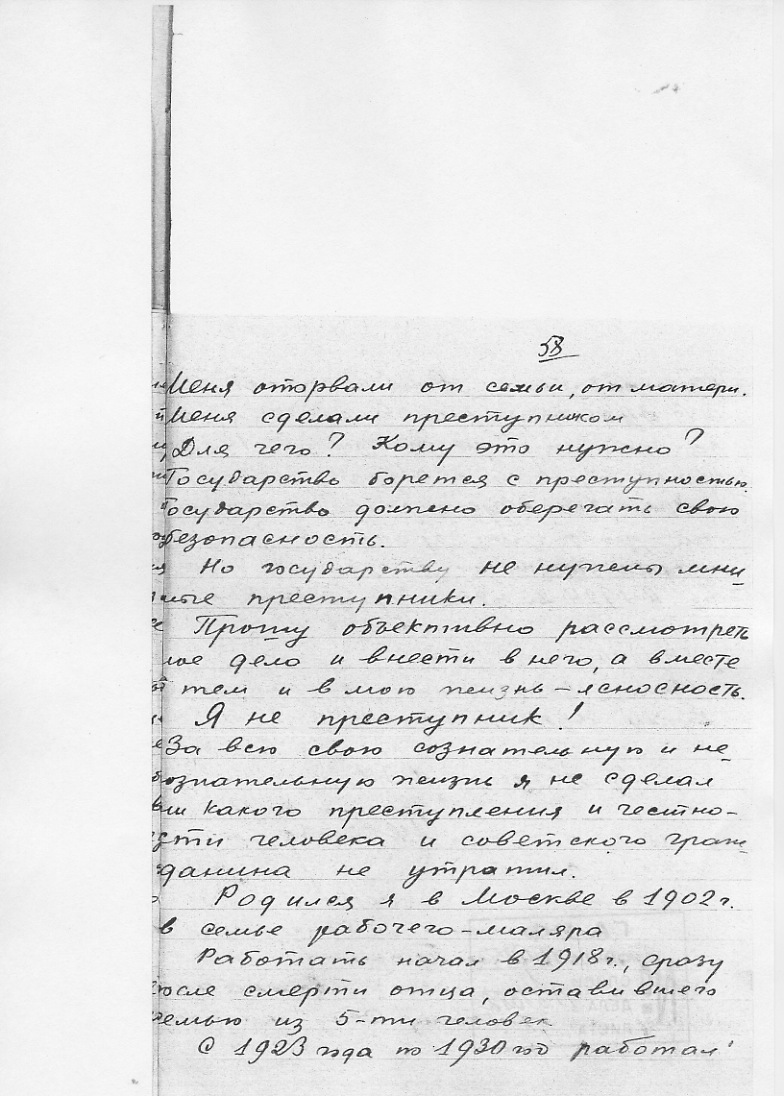 58
Меня оторвали от семьи, от матери.
Меня сделали преступником
Для чего? Кому это нужно?
Государство борется с преступностью.
Государство должно оберегать свою
безопасность.
Но государству не нужны мни-
мые преступники.
Прошу объективно рассмотреть
мое дело и внести в него, а вместе
тем и в мою жизнь – ясносность.
Я не преступник!
За всю свою сознательную и не-
сознательную жизнь я не сделал
ни какого преступления и честно-
сти человека и советского граж-
данина не утратил.
Родился я в Москве в 1902 г.
в семье рабочего-маляра
Работать начал в 1918 г., сразу
после смерти отца, оставившего
семью из 5-ти человек
С 1923 года по 1930 год работал